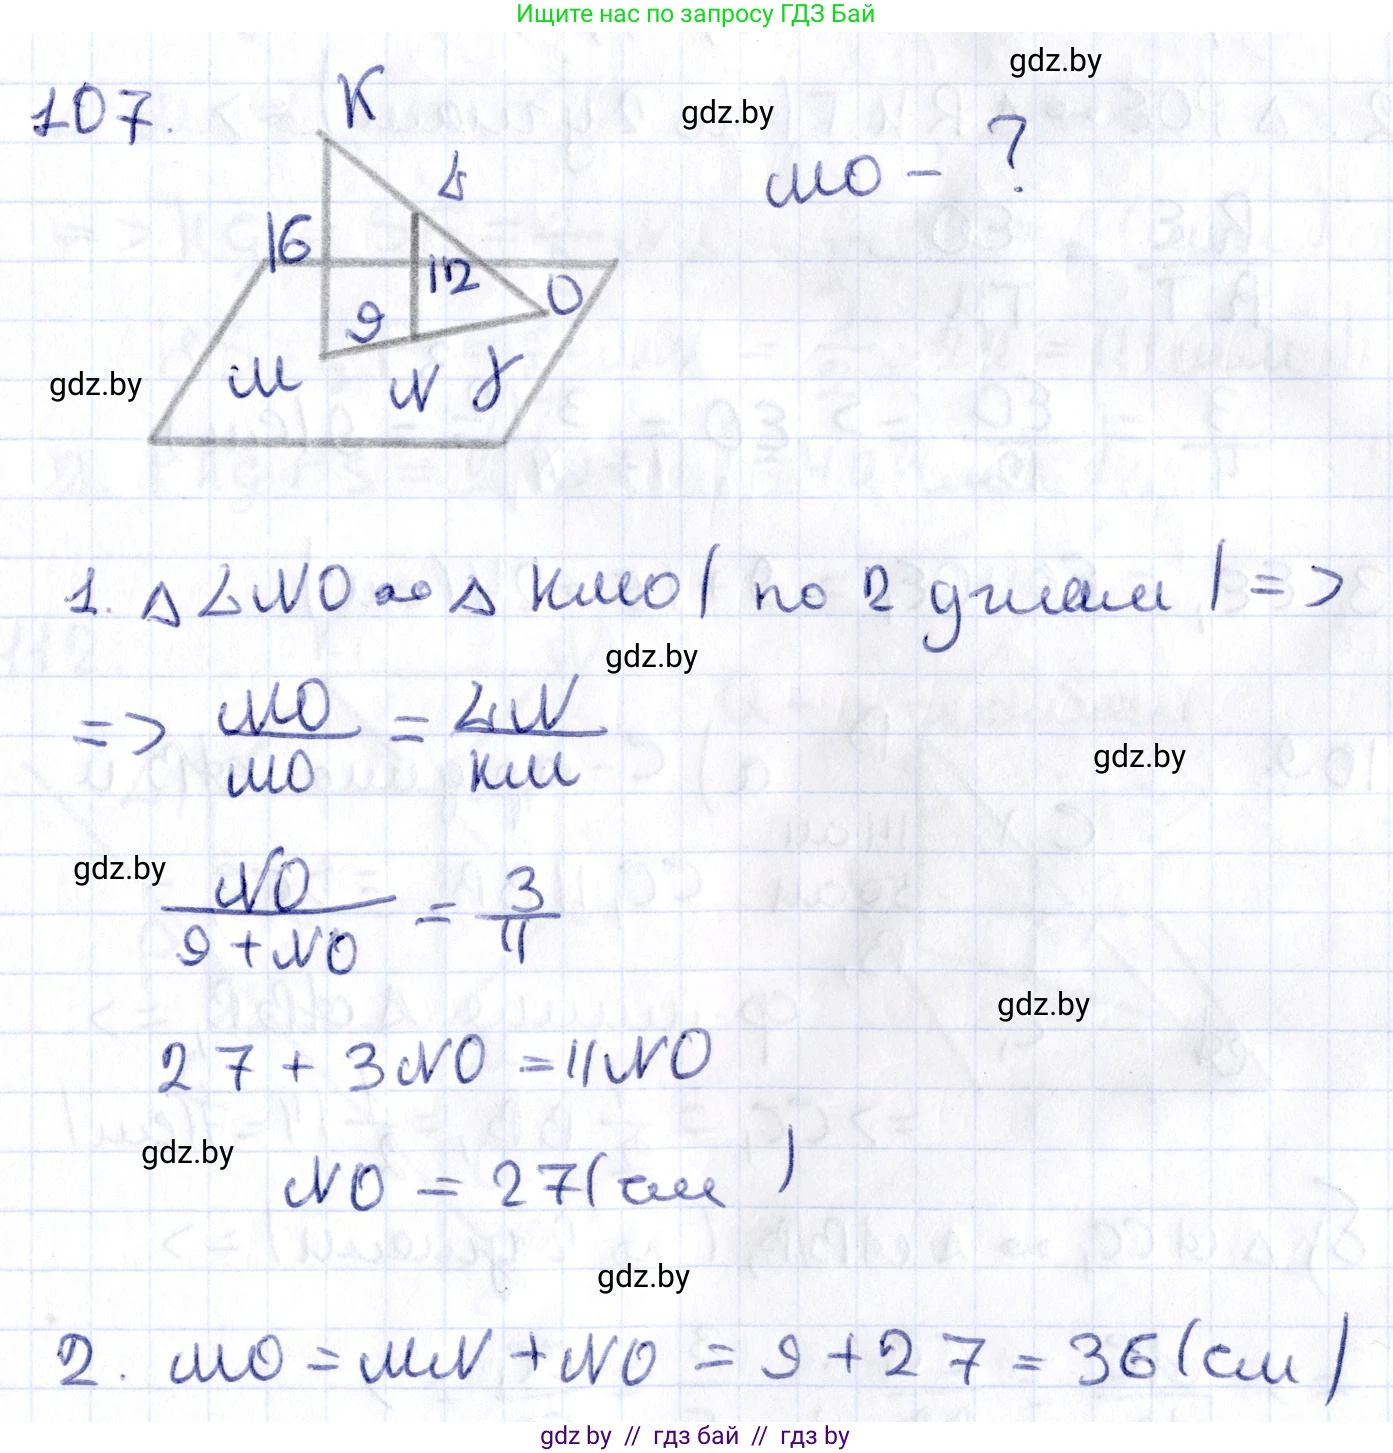 Ищите нас по запросу ГДЗ Бай
gdz.by
107.
K
gdz.by
L
MO - ?
16
12
O
9
gdz.by
M
N
γ
1. Δ LNO ∾ Δ KMO ( по 2 углам ) =>
gdz.by
=> NO/MO = LN/KM
gdz.by
gdz.by
NO/(9+NO) = 3/4
gdz.by
27 + 3NO = 4NO
gdz.by
NO = 27 (см)
gdz.by
2. MO = MN + NO = 9 + 27 = 36 (см)
gdz by // гдз бай // гдз by